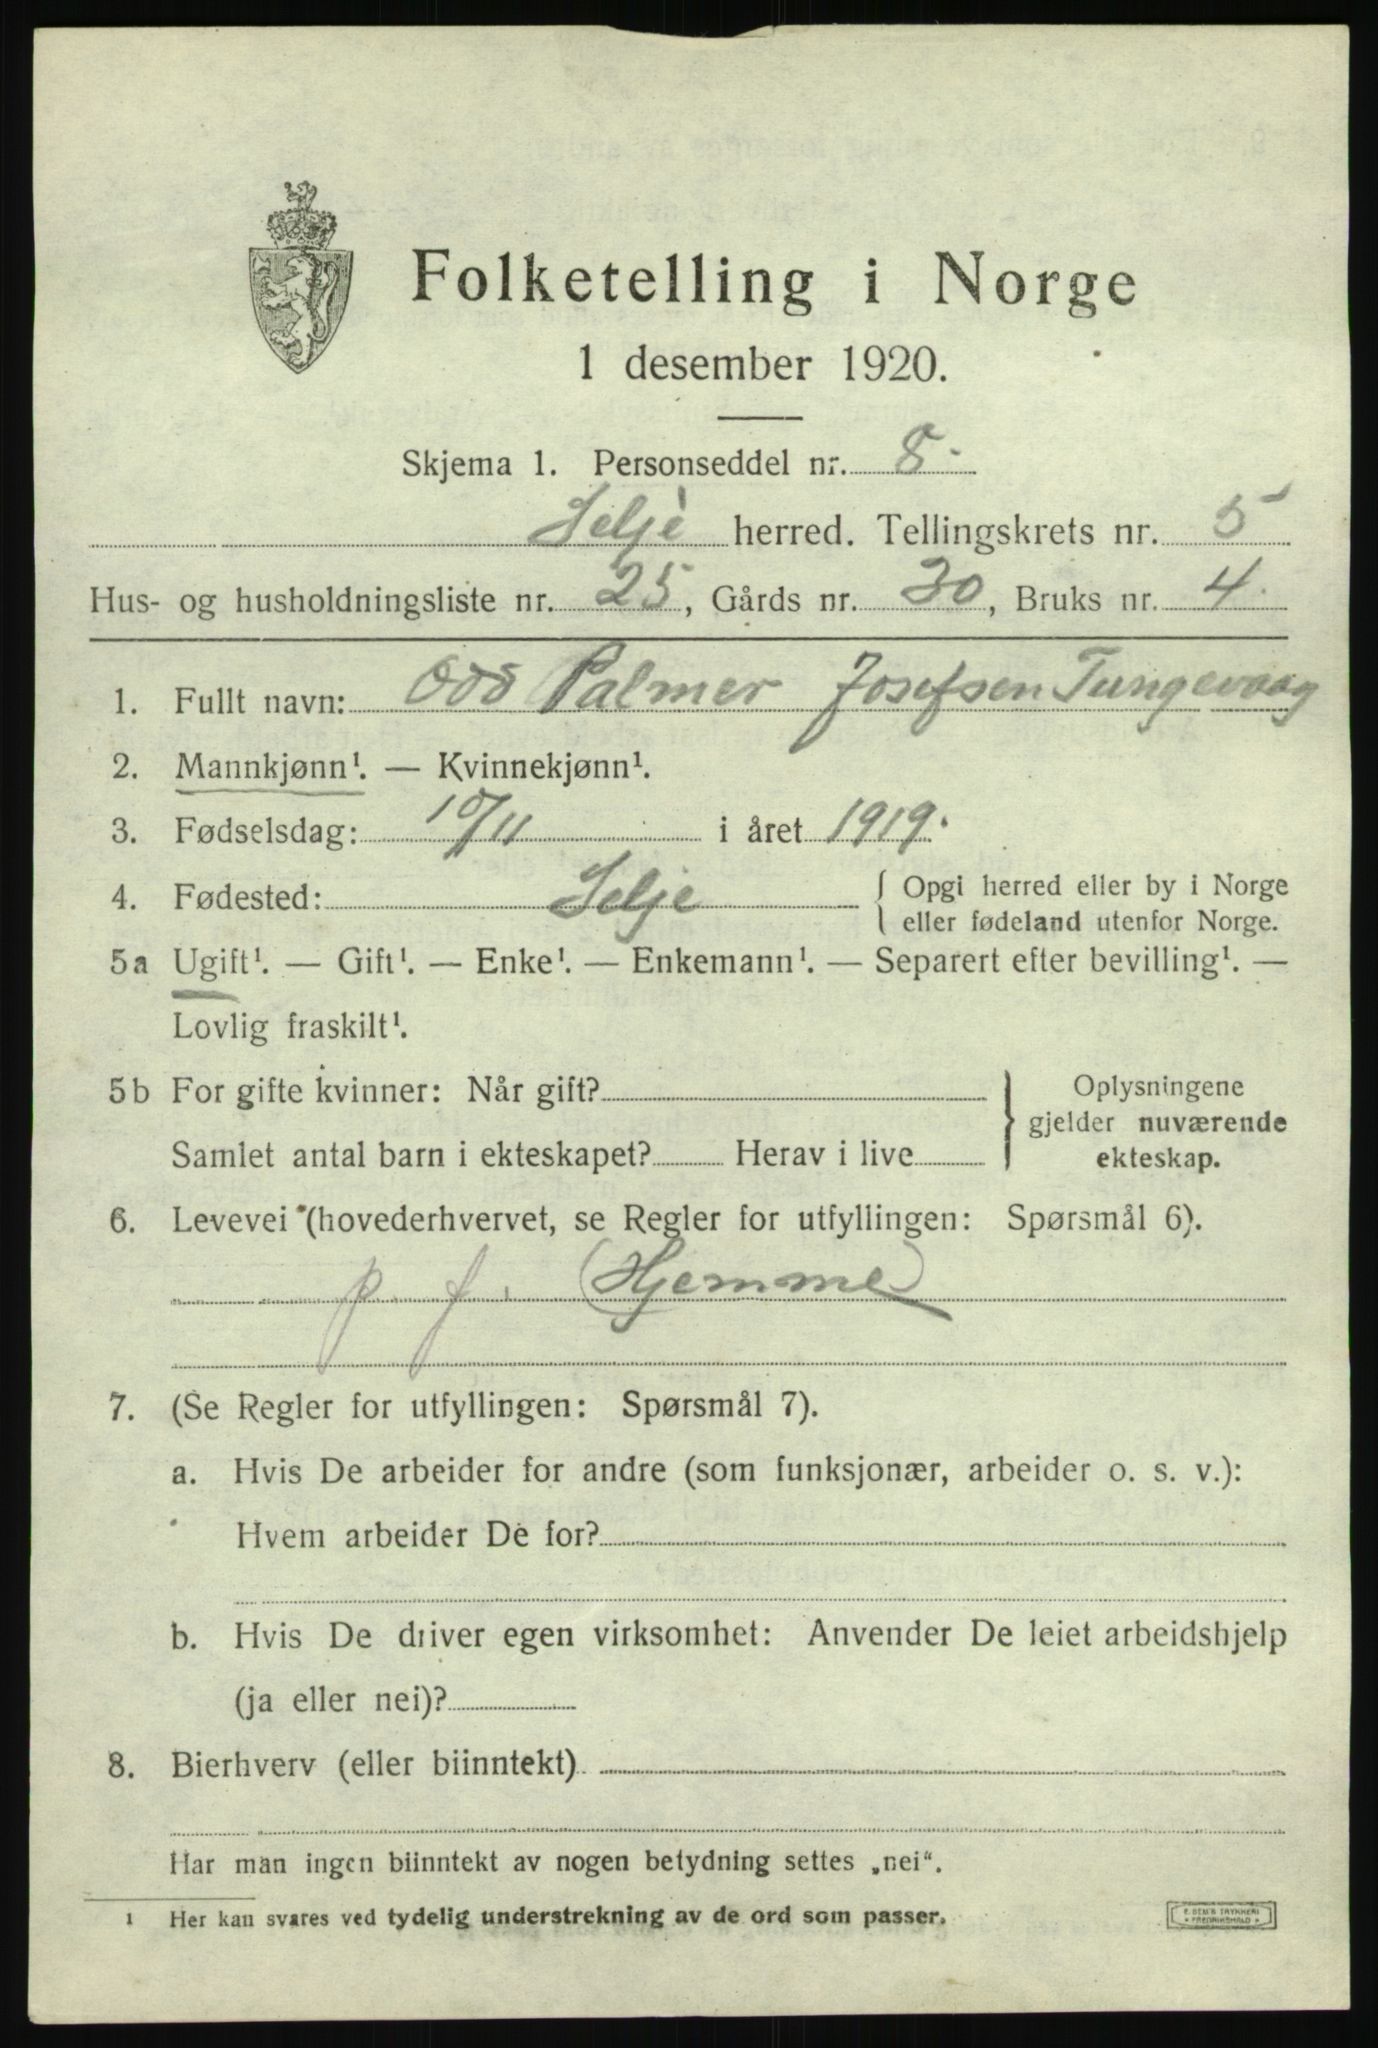 Folketelling i Norge
1 desember 1920.
Skjema 1. Personseddel nr. 8.
Selje herred. Tellingskrets nr. 5
Hus- og husholdningsliste nr. 25, Gårds nr. 30, Bruks nr. 4.
1. Fullt navn: Odd Palmer Josefsen Tungevaag
2. Mannkjønn¹. — Kvinnekjønn¹.
3. Fødselsdag: 10/11 i året 1919.
4. Fødested: Selje { Opgi herred eller by i Norge
eller fødeland utenfor Norge.
5a Ugift¹. — Gift¹. — Enke¹. — Enkemann¹. — Separert efter bevilling¹. —
Lovlig fraskilt¹.
5b For gifte kvinner: Når gift?
Samlet antal barn i ekteskapet? Herav i live
} Oplysningene
gjelder nuværende
ekteskap.
6. Levevei (hovederhvervet, se Regler for utfyllingen: Spørsmål 6).
p. f. (Hjemme)
7. (Se Regler for utfyllingen: Spørsmål 7).
a. Hvis De arbeider for andre (som funksjonær, arbeider o. s. v.):
Hvem arbeider De for?
b. Hvis De driver egen virksomhet: Anvender De leiet arbeidshjelp
(ja eller nei)?
8. Bierhverv (eller biinntekt)
Har man ingen biinntekt av nogen betydning settes „nei“.
1 Her kan svares ved tydelig understrekning av de ord som passer.
E. SEM'S TRYKKERI
FREDRIKSHALD